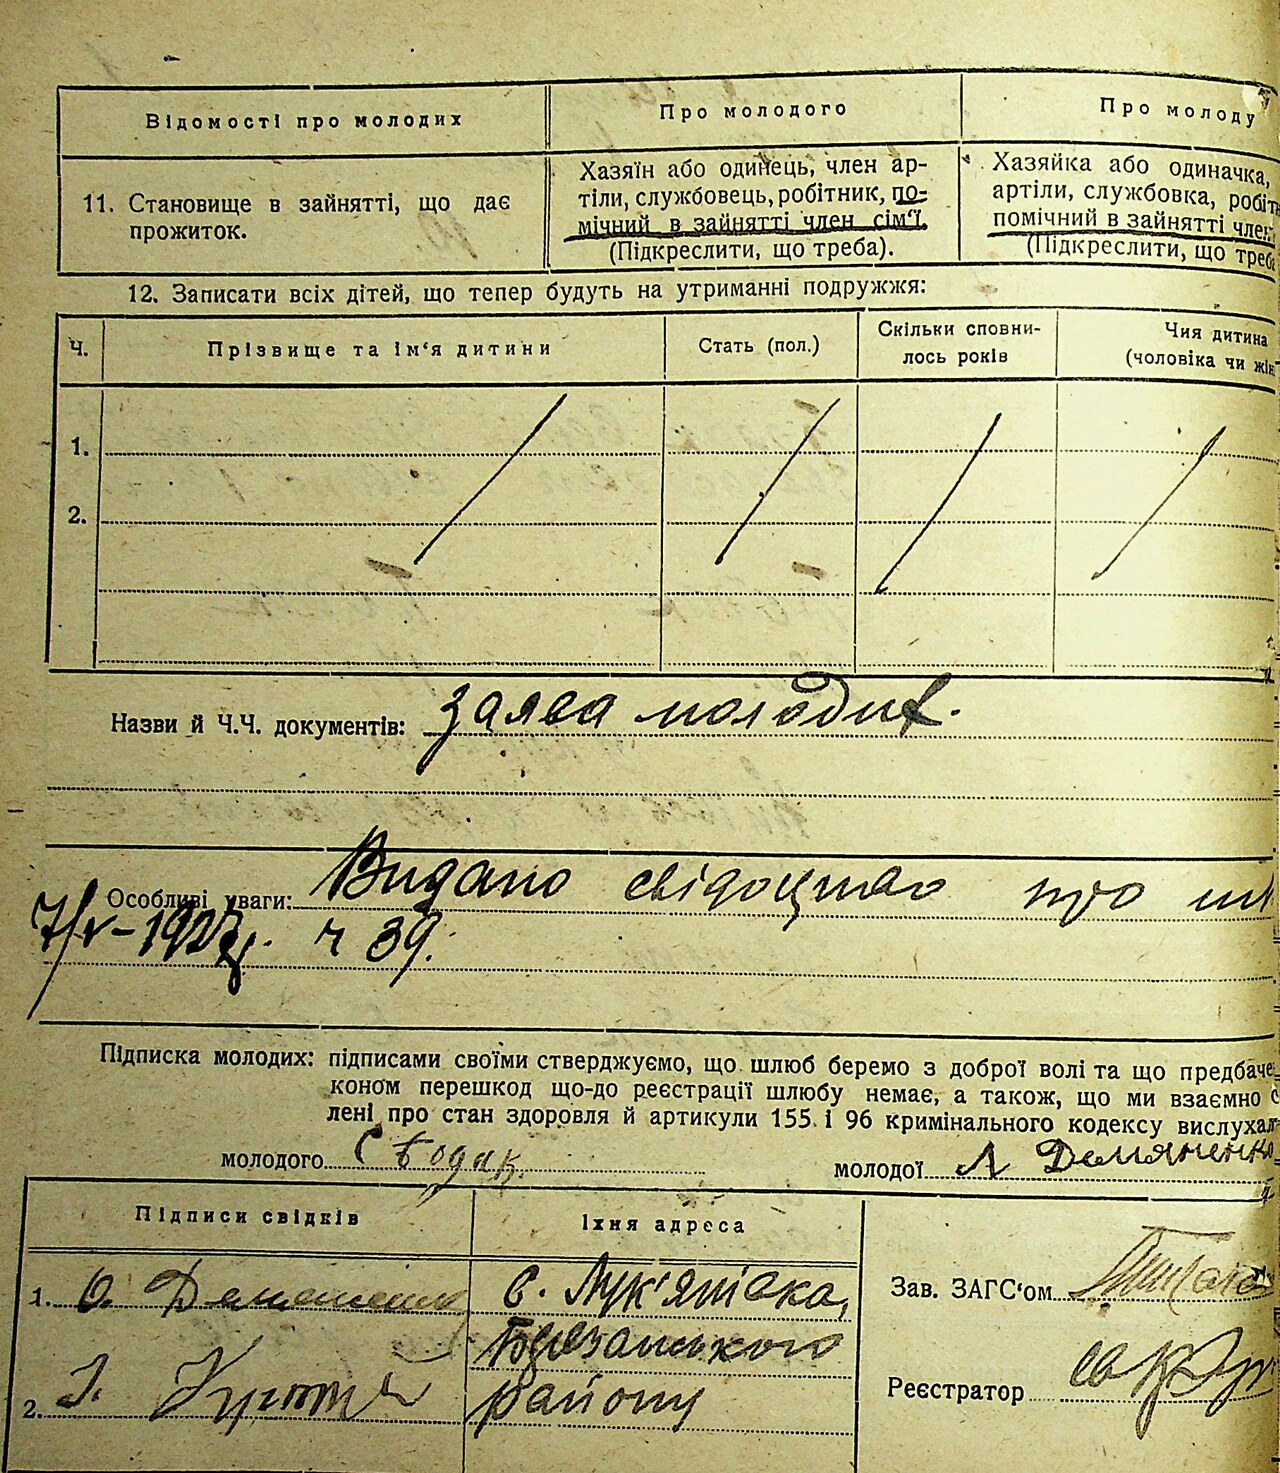 Відомості про молодих
Про молодого
Про молоду
11. Становище в зайнятті, що дає
прожиток.
Хазяїн або одинець, член ар-
тіли, службовець, робітник, по-
мічний в зайнятті член сім'ї.
(Підкреслити, що треба).
Хазяйка або одиначка,
артіли, службовка, робіт
помічний в зайнятті член
(Підкреслити, що треба
12. Записати всіх дітей, що тепер будуть на утриманні подружжя:
Ч.
Прізвище та ім'я дитини
Стать (пол.)
Скільки сповни-
лось років
Чия дитина
(чоловіка чи жін
1.
2.
Назви й Ч.Ч. документів: заява молодих.
Особливі уваги: Видано свідоцтво про шл
7/V-1927р. ч 39.
Підписка молодих: підписами своїми стверджуємо, що шлюб беремо з доброї волі та що предбаче
коном перешкод що-до реєстрації шлюбу немає, а також, що ми взаємно с
лені про стан здоровля й артикули 155 і 96 кримінального кодексу вислухал
молодого С Бодак
молодої Л Демяненко
Підписи свідків
Їхня адреса
1. О.
с. Лук'янівка,
Березанського
2.
району
Зав. ЗАГС'ом
Реєстратор